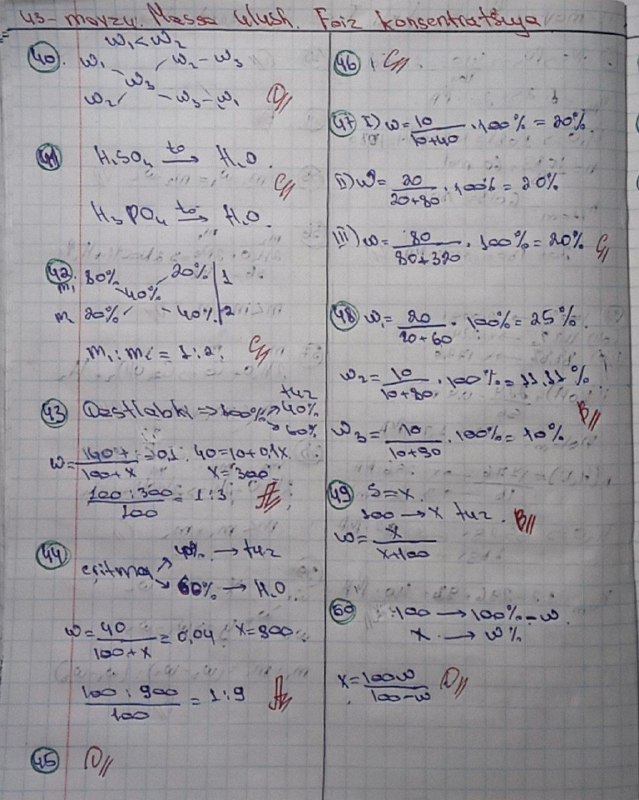 43- mavzu. Massa ulush. Foiz konsentratsiya
40. w₁<w₂
w₁ w₂-w₃
w₃
w₂ w₃-w₁ D//
41 H₂SO₄ →(t°) H₂O. C//
H₃PO₄ →(t°) H₂O.
42. m₁ 80% 20% | 1
40%
m₂ 20% 40% | 2
m₁:m₂ = 1:2; C//
43 Dastlabki ⇒ 100% → 40% tuz
→ 60%
w = 40/(100+x) = 0,1. 40=10+0,1x
x=300
(100:300)/100 = 1:3 A//
44 eritma → 40% → tuz
→ 60% → H₂O.
w = 40/(100+x) = 0,04 x=900
(100:900)/100 = 1:9 A//
45 D//
46 C//
47 I) w = 10/(10+40) · 100% = 20%.
II) w = 20/(20+80) · 100% = 20%
III) w = 80/(80+320) · 100% = 20% C//
48 w₁ = 20/(20+60) · 100% = 25%.
w₂ = 10/(10+80) · 100% = 11,11%
B//
w₃ = 10/(10+90) · 100% = 10%
49 S=x
100 → x tuz. B//
w = x/(x+100)
50 100 → 100%-w.
x → w%
x = 100w/(100-w) D//